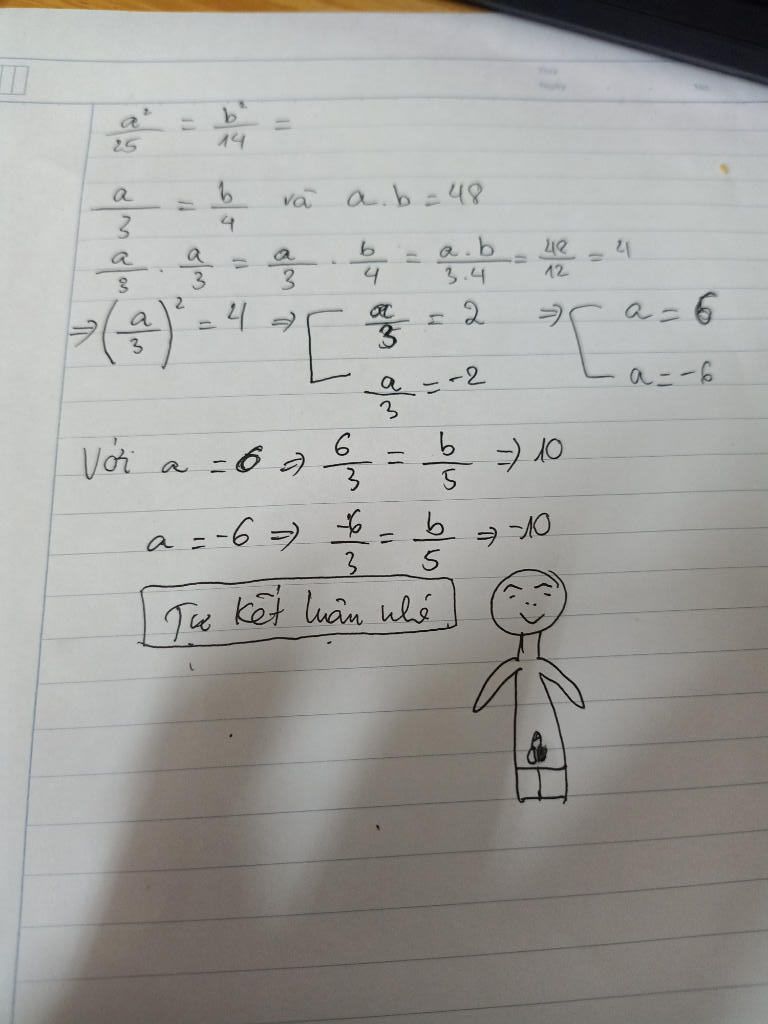 a²/25 = b²/14 =
a/3 = b/4 và a.b = 48
a/3 . a/3 = a/3 . b/4 = a.b/3.4 = 48/12 = 4
⇒ (a/3)² = 4 ⇒ [ a/3 = 2 ⇒ [ a = 6
a/3 = -2 a = -6
Với a = 6 ⇒ 6/3 = b/5 ⇒ 10
a = -6 ⇒ -6/3 = b/5 ⇒ -10
Tự kết luận nhé